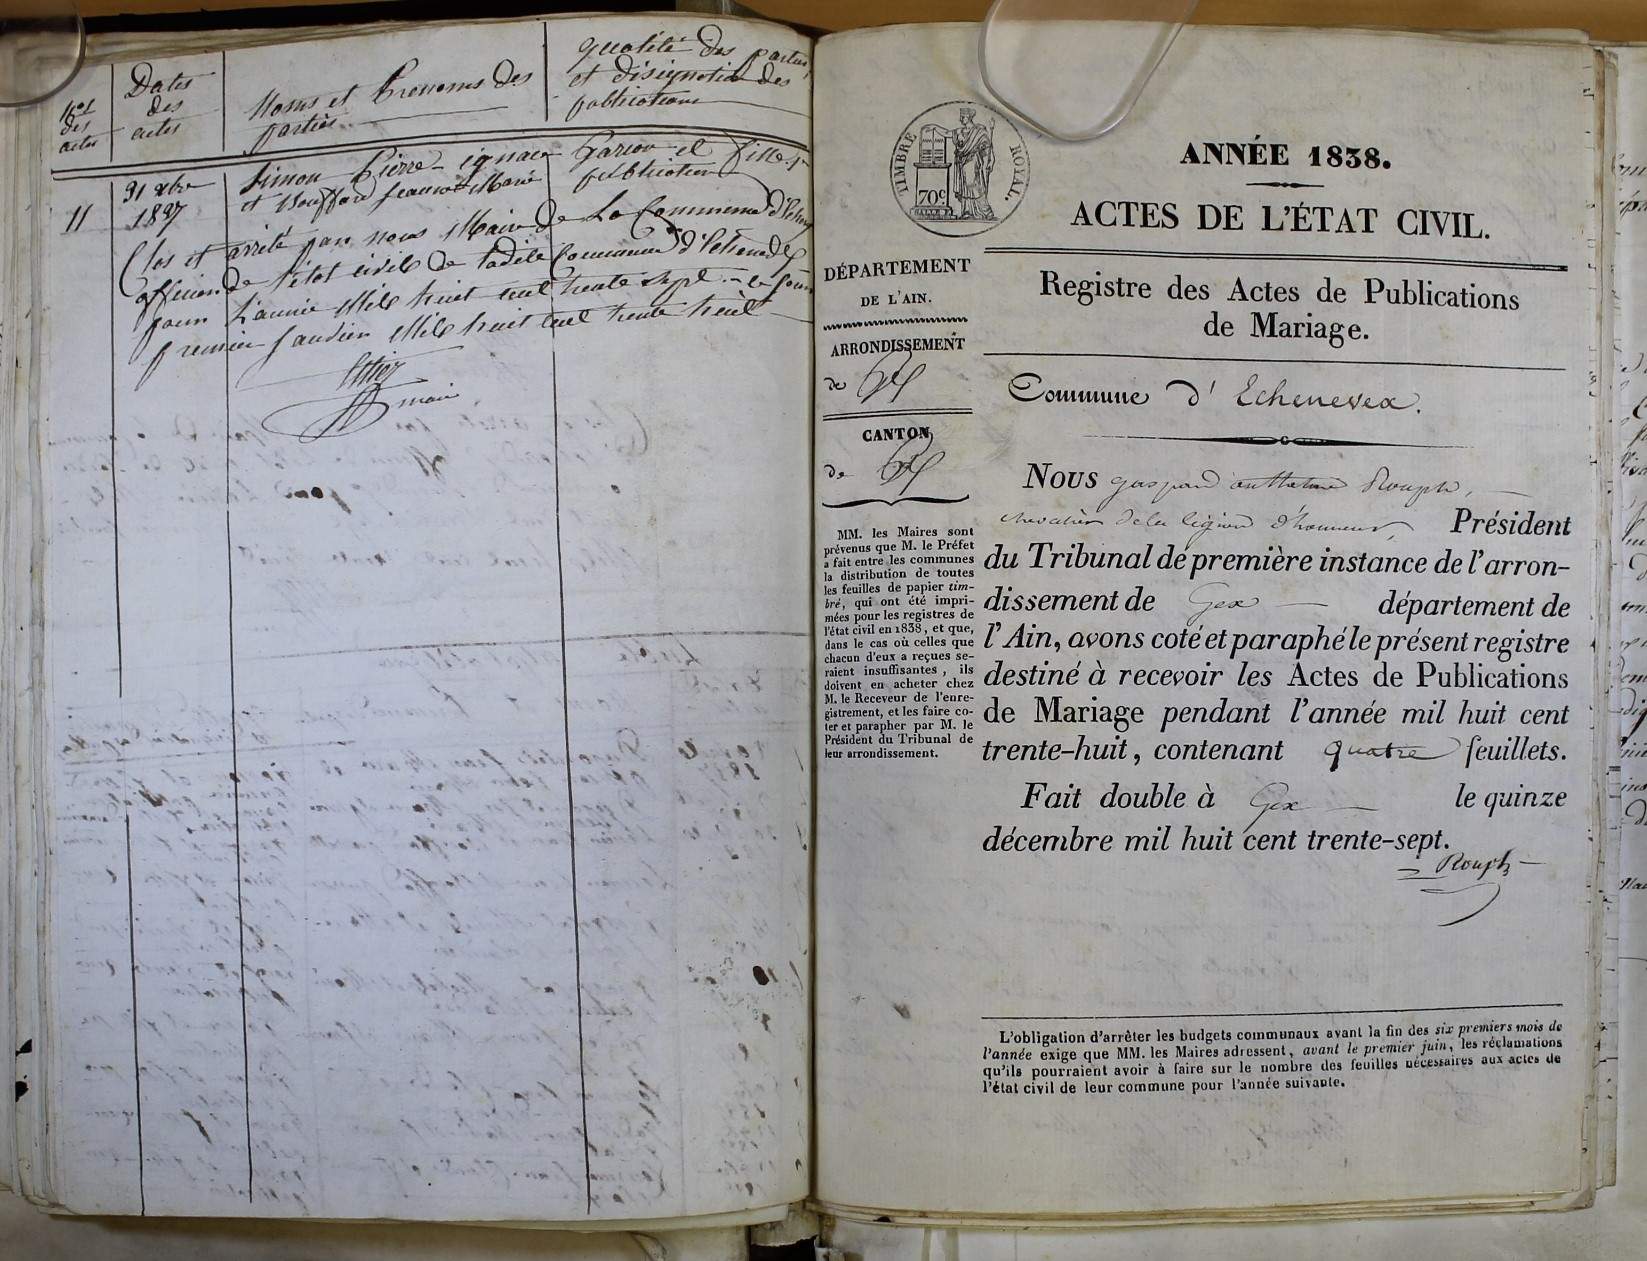 Nos
des
actes
Dates
des
actes
Noms et Prenoms des
parties
qualité des parties
et désignation des
publications
11
31 xbre
1837
Simon Pierre ignace
et Bouffard Jeanne Marie
Garcon et fille
publication
Clos et arrêté par nous Maire de La Commune d'Echenevex
officier de l'état civile de ladite Commune d'Echenevex
pour L'année Mil huit cent trente sept. le jour
premier Janvier Mil huit cent trente huit
maire
TIMBRE ROYAL.
70c
ANNÉE 1838.
ACTES DE L'ÉTAT CIVIL.
DÉPARTEMENT
DE L'AIN.
ARRONDISSEMENT
de Gex
CANTON
de Gex
MM. les Maires sont
prévenus que M. le Préfet
a fait entre les communes
la distribution de toutes
les feuilles de papier tim-
bré, qui ont été impri-
mées pour les registres de
l'état civil en 1838, et que,
dans le cas où celles que
chacun d'eux a reçues se-
raient insuffisantes, ils
doivent en acheter chez
M. le Receveur de l'enre-
gistrement, et les faire co-
ter et parapher par M. le
Président du Tribunal de
leur arrondissement.
Registre des Actes de Publications
de Mariage.
Commune d'Echenevex.
Nous gaspard anthelme Rouph,
chevalier de la légion d'honneur, Président
du Tribunal de première instance de l'arron-
dissement de Gex département de
l'Ain, avons coté et paraphé le présent registre
destiné à recevoir les Actes de Publications
de Mariage pendant l'année mil huit cent
trente-huit, contenant quatre feuillets.
Fait double à Gex le quinze
décembre mil huit cent trente-sept.
Rouph
L'obligation d'arrêter les budgets communaux avant la fin des six premiers mois de
l'année exige que MM. les Maires adressent, avant le premier juin, les réclamations
qu'ils pourraient avoir à faire sur le nombre des feuilles nécessaires aux actes de
l'état civil de leur commune pour l'année suivante.